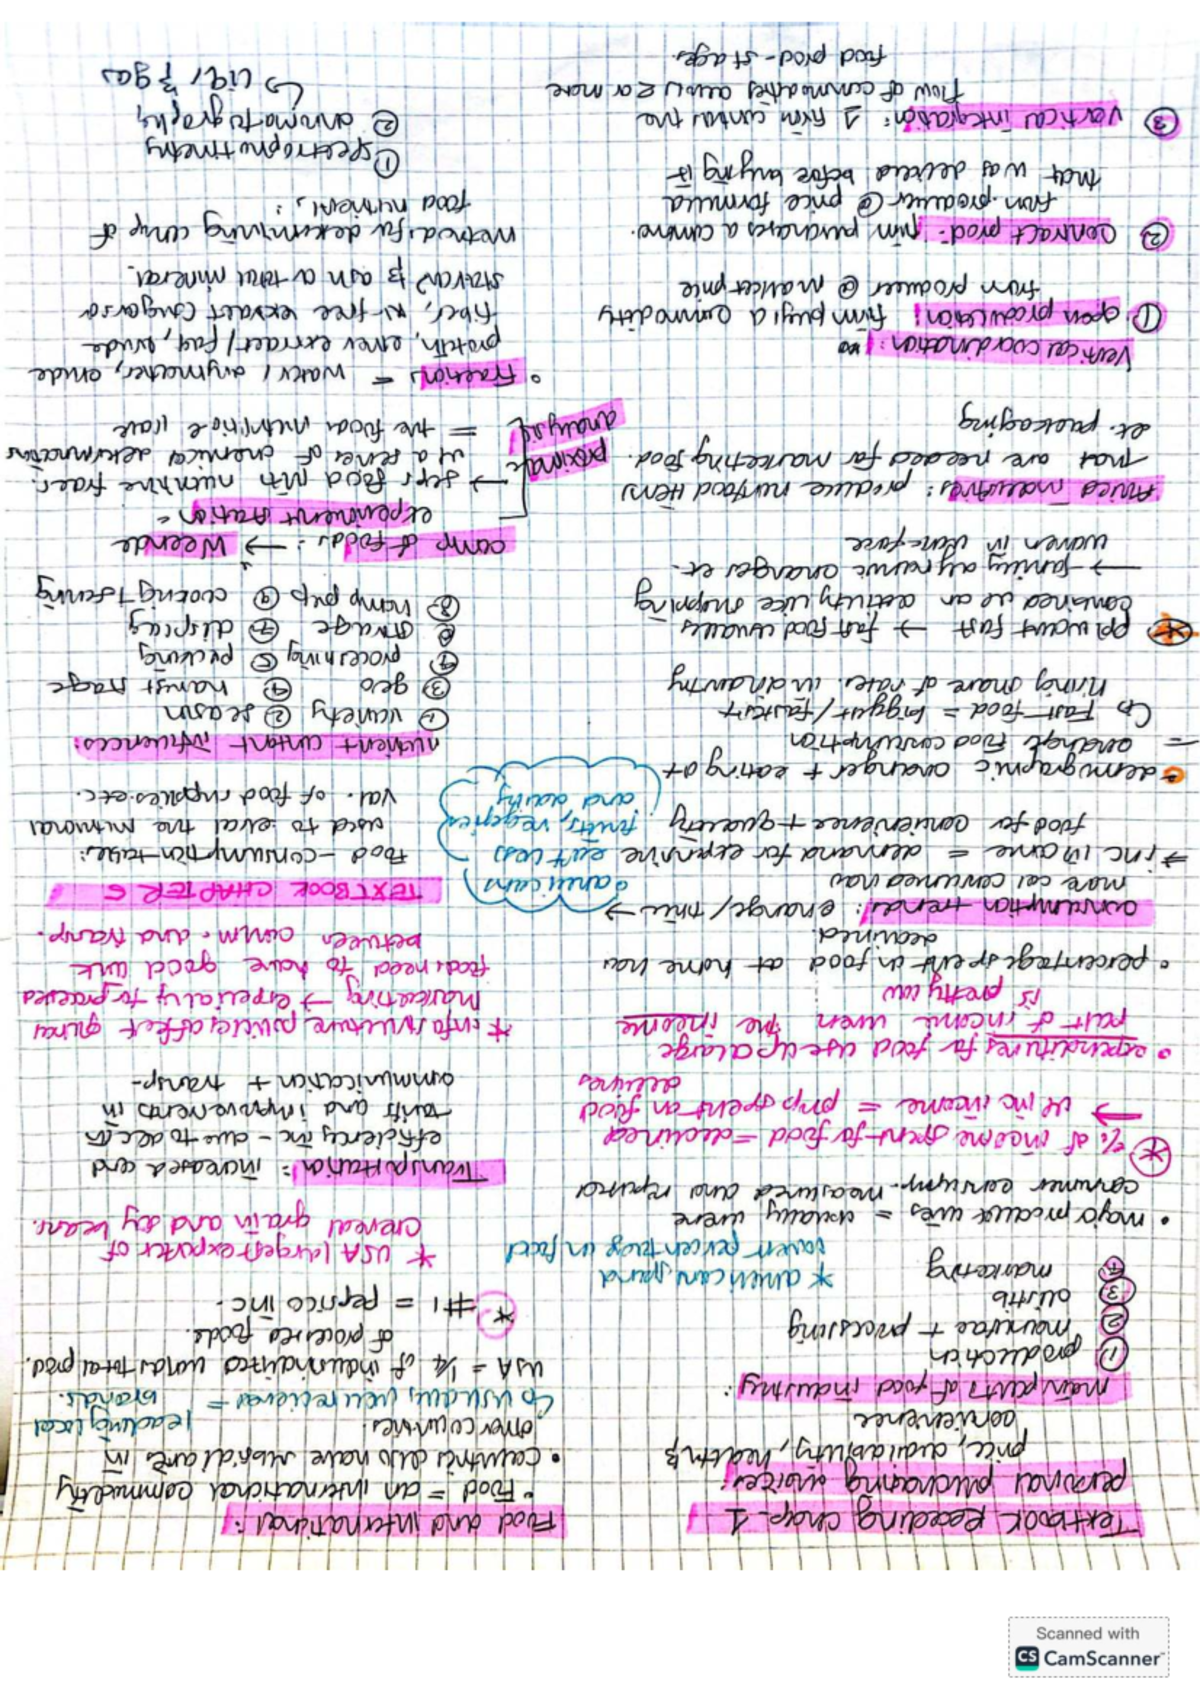 Textbook Reading chap-1
personal purchasing choices:
price, availability, health &
convenience
main parts of food industry:
① production
② manufac + processing
③ distrib
④ marketing
* americans spend
lowest percentage on food
• major product lines = usually were
consumer consump. measured and reported
* % of income spent for food = declined
→ ↓ inc income = prop spent on food
declines
• expenditures for food use up a large
part of income when the income
is pretty low
• percentage spent on food at home has
declined.
consumption trends: change/price →
more cal consumed now
→ inc income = demand for expensive
food for convenience + quality
americans
eat less
fruits, veggies
and dairy
• demographic changes + eating at
= change food consumption
↳ Fast food = biggest/fastest
hiring share of rates. in industry
* ppl want fast → fast food
combined w an activity like shopping
→ family dynamic changes ex.
women in workforce
Allied industries: produce nonfood items
that are needed for marketing food.
ex. packaging
Vertical coordination:
① open production: firm buys a commodity
from producer @ market price
② contract prod: firm purchases a commo.
from producer @ price formula
that was decided before buying it
③ vertical integration: 1 firm controls the
flow of commodities across 2 or more
food prod-stages
Food and international:
• Food = an international commodity
• countries also have subsidiaries in
other countries.
↳ usually well recieved = leading local
brands.
USA = 1/4 of industrialized worlds total prod.
of processed foods.
* #1 = pepsico inc.
* USA largest exporter of
cereal grain and soy beans.
Transportation: increased and
efficiency inc - due to dec in
tariffs and improvements in
communication + transp-
* infrastructure policies affect
marketing → especially for processed
foods need to have good link
between comm. and transp.
TEXTBOOK CHAPTER 6
Food-consumption tables:
used to eval the nutritional
val. of food supplies etc.
nutrient content influences:
① variety ② season
③ geo ④ harvest stage
④ processing ⑤ packing
⑥ storage ⑦ display
⑧ home prep ⑨ cooking + serving
comp of foods: → Weende
experiment station -
→ seps food into nutritive fracs.
w a series of chemical determinations
= the food nutritive value
proximate
analysis
• Fractions = water/drymatter, crude
protein, ether extract/fat, crude
fiber, N-free extract (sugars or
starch) & ash or total mineral.
methods for determining comp of
food nutrients:
① spectrophotometry
② chromatography
↳ Liq / & gas
Scanned with
CS CamScanner